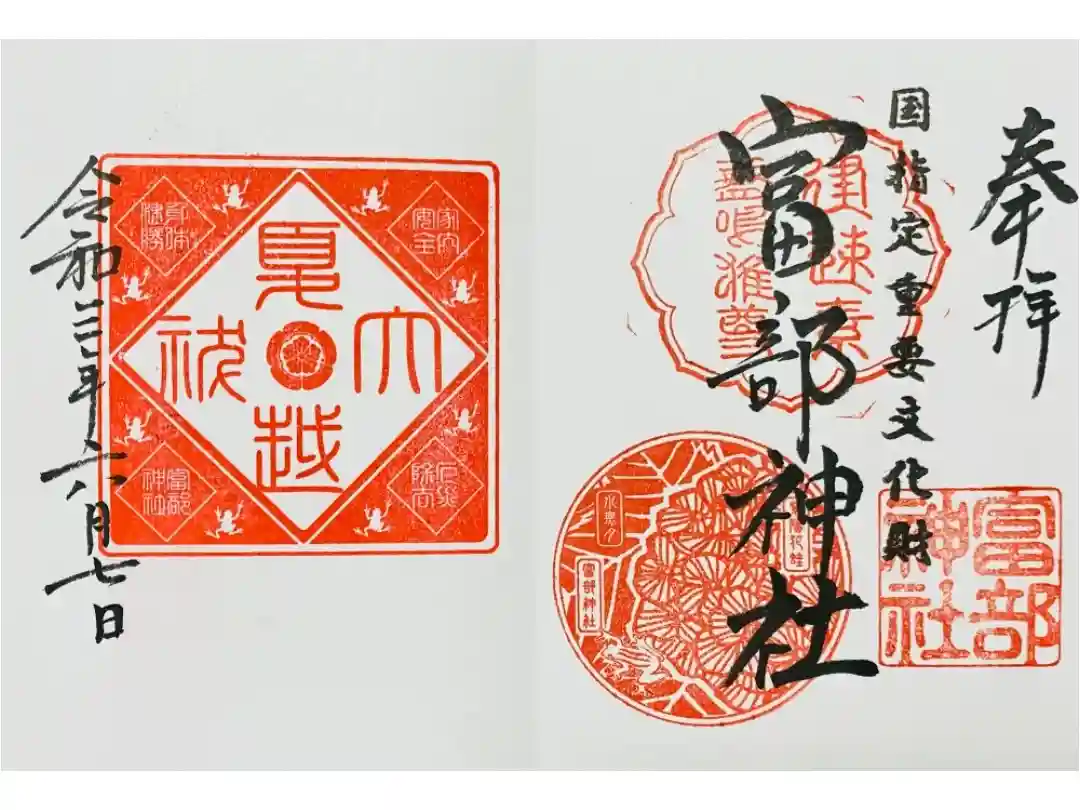 奉拝
国指定重要文化財
富部神社
建速素
盞嗚雄尊
富部
神社
水無月
富部神社
夏越
大祓
家内
安全
身体
健勝
富部
神社
令和三年六月七日